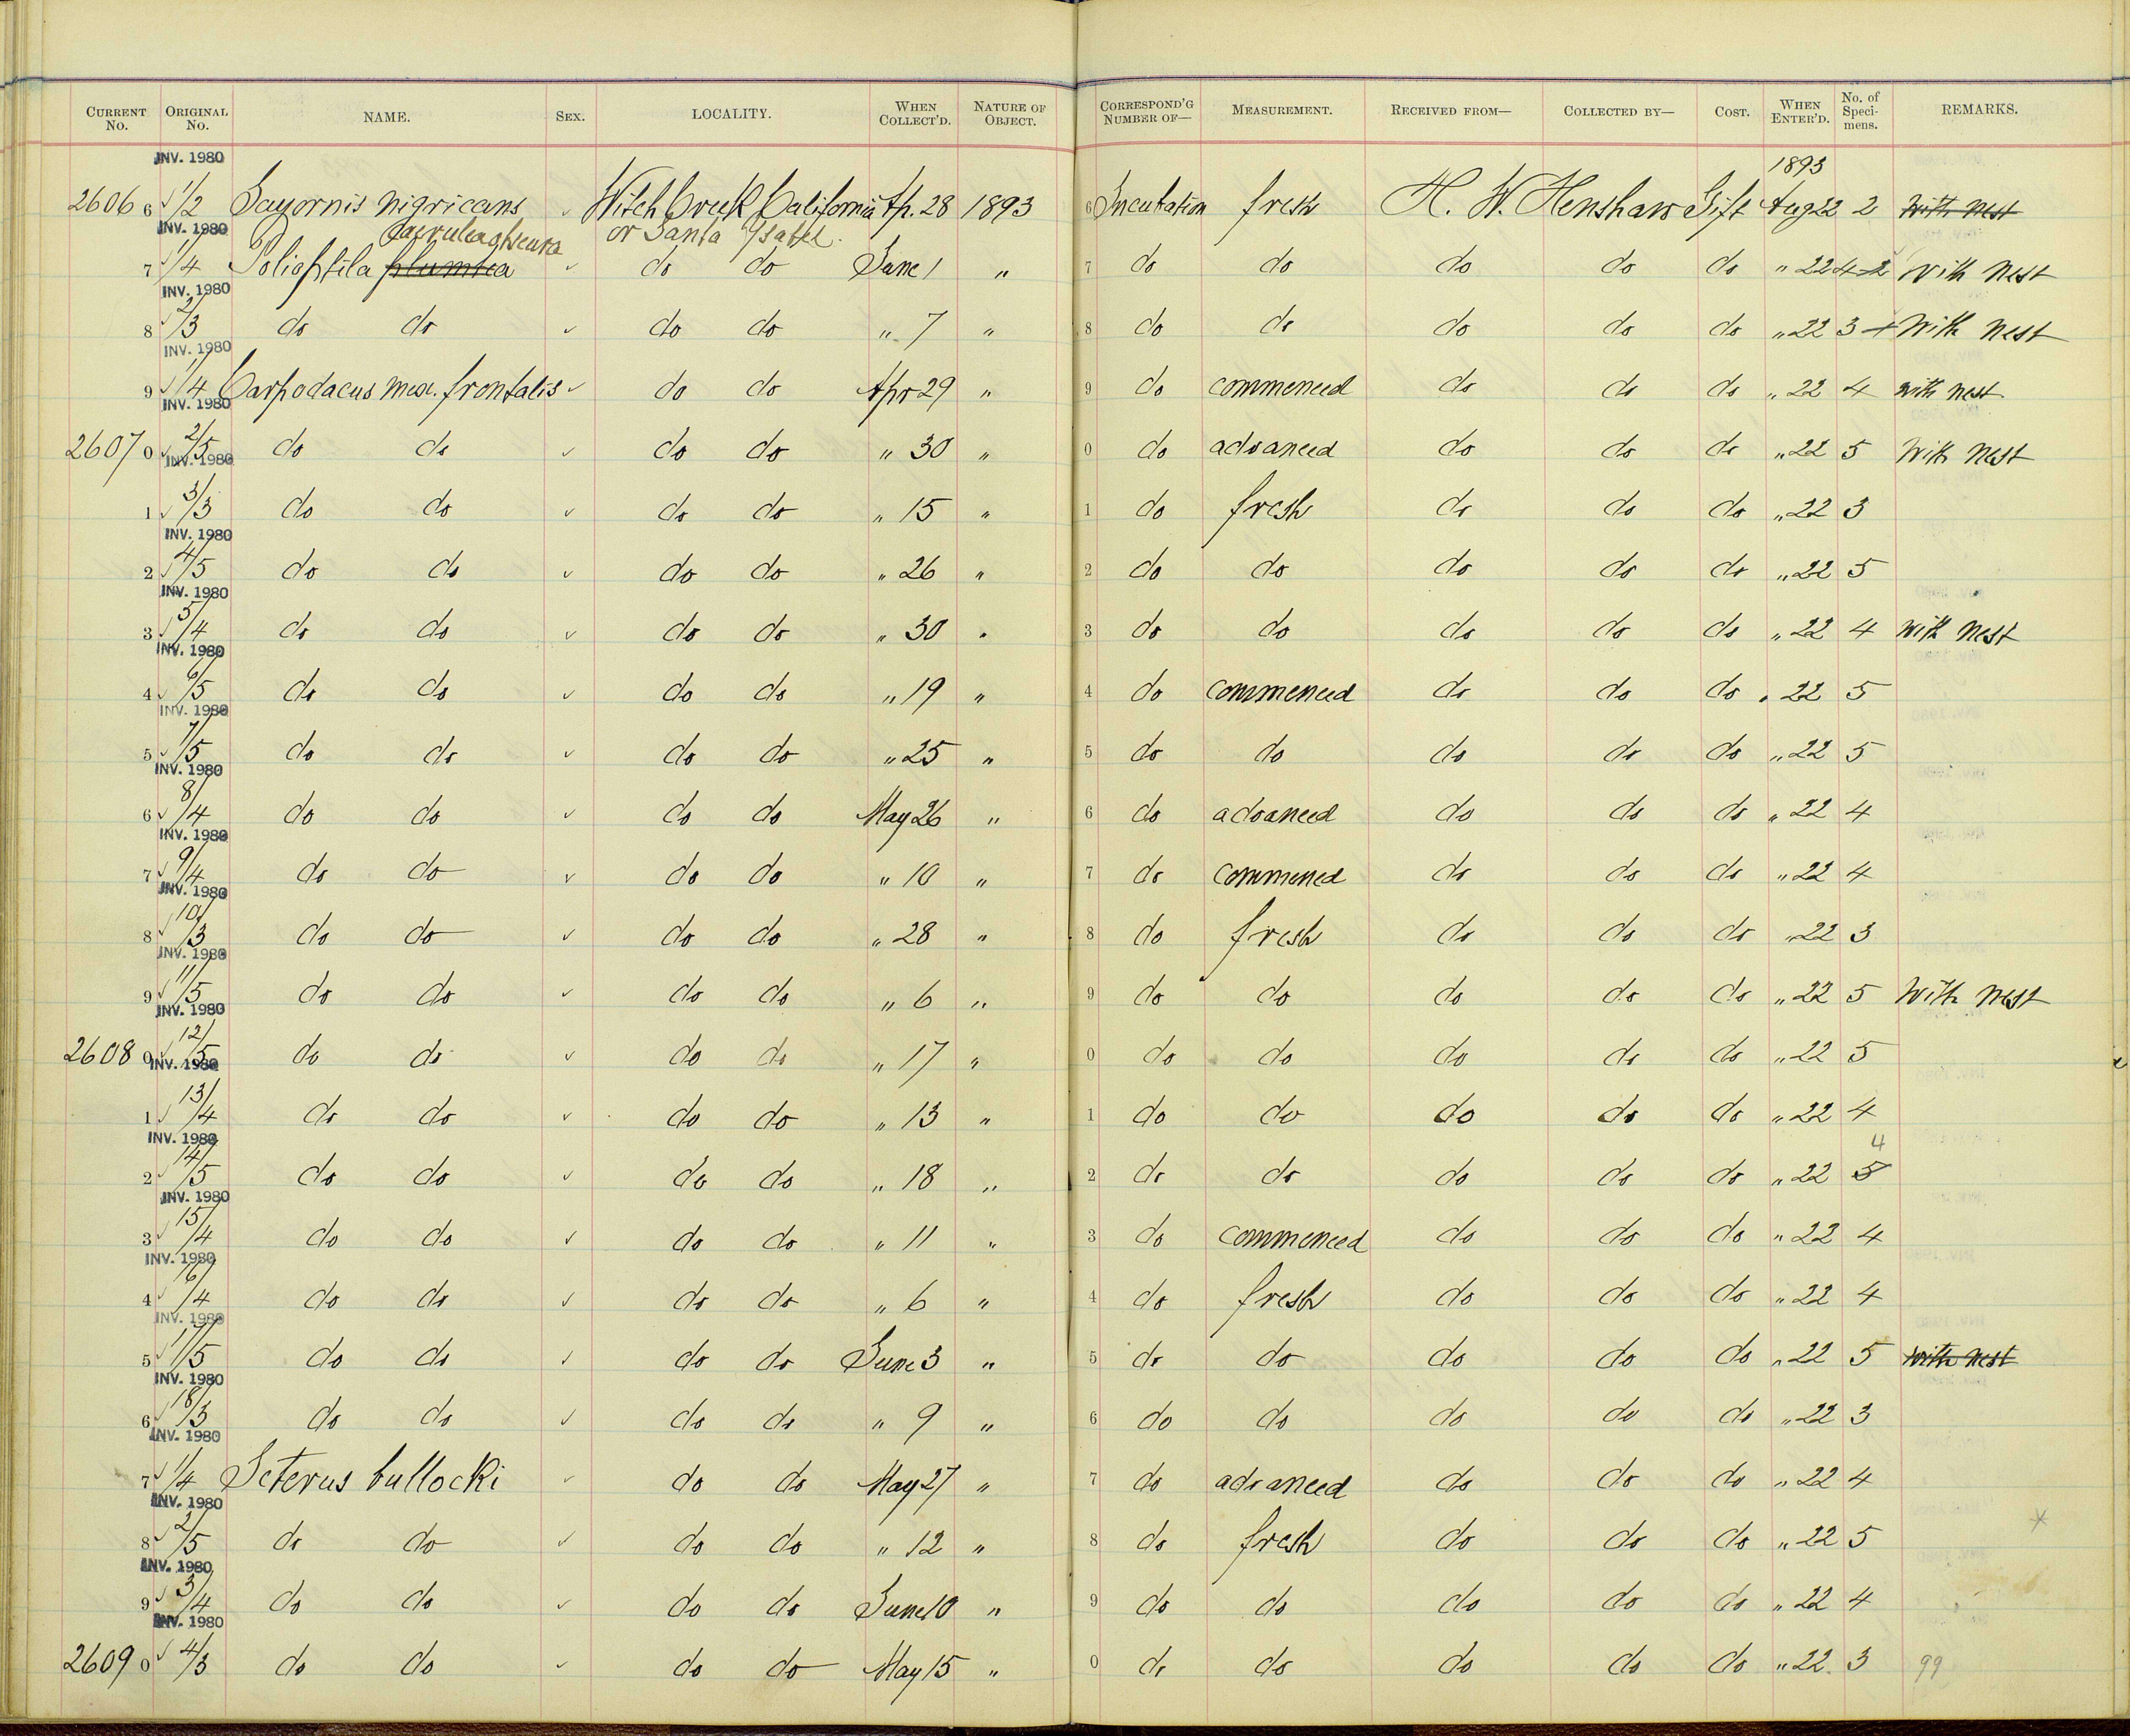 CURRENT No. ORIGINAL No. NAME. SEX. LOCALITY. WHEN COLLECT'D. NATURE OF OBJECT. CORRESPOND'G NUMBER OF— MEASUREMENT. RECEIVED FROM— COLLECTED BY— COST. WHEN ENTER'D. No. of Specimens. REMARKS.
INV. 1980 1893
2606 6 ✓ 1/2 Sayornis nigricans ✓ Witch Creek, California Ap. 28 1893 6 Incubation fresh H. W. Henshaw Gift Aug 22 2 With nest
INV. 1980 caerulea obscura or Santa Ysabel.
7 ✓ 1/4 Polioptila plumbea ✓ do do June 1 " 7 do do do do do " 22 4 With nest
INV. 1980
8 ✓ 2/3 do do ✓ do do " 7 " 8 do do do do do " 22 3 With nest
INV. 1980
9 ✓ 1/4 Carpodacus mex. frontalis ✓ do do Apr 29 " 9 do commenced do do do " 22 4 with nest
INV. 1980
2607 0 ✓ 2/5 do do ✓ do do " 30 " 0 do advanced do do do " 22 5 With nest
INV. 1980
1 ✓ 3/3 do do ✓ do do " 15 " 1 do fresh do do do " 22 3
INV. 1980
2 ✓ 4/5 do do ✓ do do " 26 " 2 do do do do do " 22 5
INV. 1980
3 ✓ 5/4 do do ✓ do do " 30 " 3 do do do do do " 22 4 With nest
INV. 1980
4 ✓ 6/5 do do ✓ do do " 19 " 4 do commenced do do do " 22 5
INV. 1980
5 ✓ 7/5 do do ✓ do do " 25 " 5 do do do do do " 22 5
INV. 1980
6 ✓ 8/4 do do ✓ do do May 26 " 6 do advanced do do do " 22 4
INV. 1980
7 ✓ 9/4 do do ✓ do do " 10 " 7 do commened do do do " 22 4
INV. 1980
8 ✓ 10/3 do do ✓ do do " 28 " 8 do fresh do do do " 22 3
INV. 1980
9 ✓ 11/5 do do ✓ do do " 6 " 9 do do do do do " 22 5 With nest
INV. 1980
2608 0 ✓ 12/5 do do ✓ do do " 17 " 0 do do do do do " 22 5
INV. 1980
1 ✓ 13/4 do do ✓ do do " 13 " 1 do do do do do " 22 4
INV. 1980 4
2 ✓ 14/5 do do ✓ do do " 18 " 2 do do do do do " 22 5
INV. 1980
3 ✓ 15/4 do do ✓ do do " 11 " 3 do commenced do do do " 22 4
INV. 1980
4 ✓ 16/4 do do ✓ do do " 6 " 4 do fresh do do do " 22 4
INV. 1980
5 ✓ 17/5 do do ✓ do do June 3 " 5 do do do do do " 22 5 With nest
INV. 1980
6 ✓ 18/3 do do ✓ do do " 9 " 6 do do do do do " 22 3
INV. 1980
7 ✓ 1/4 Icterus bullocki ✓ do do May 27 " 7 do advanced do do do " 22 4
INV. 1980
8 ✓ 2/5 do do ✓ do do " 12 " 8 do fresh do do do " 22 5 *
INV. 1980
9 ✓ 3/4 do do ✓ do do June 10 " 9 do do do do do " 22 4
INV. 1980
2609 0 ✓ 4/3 do do ✓ do do May 15 " 0 do do do do do " 22 3 99